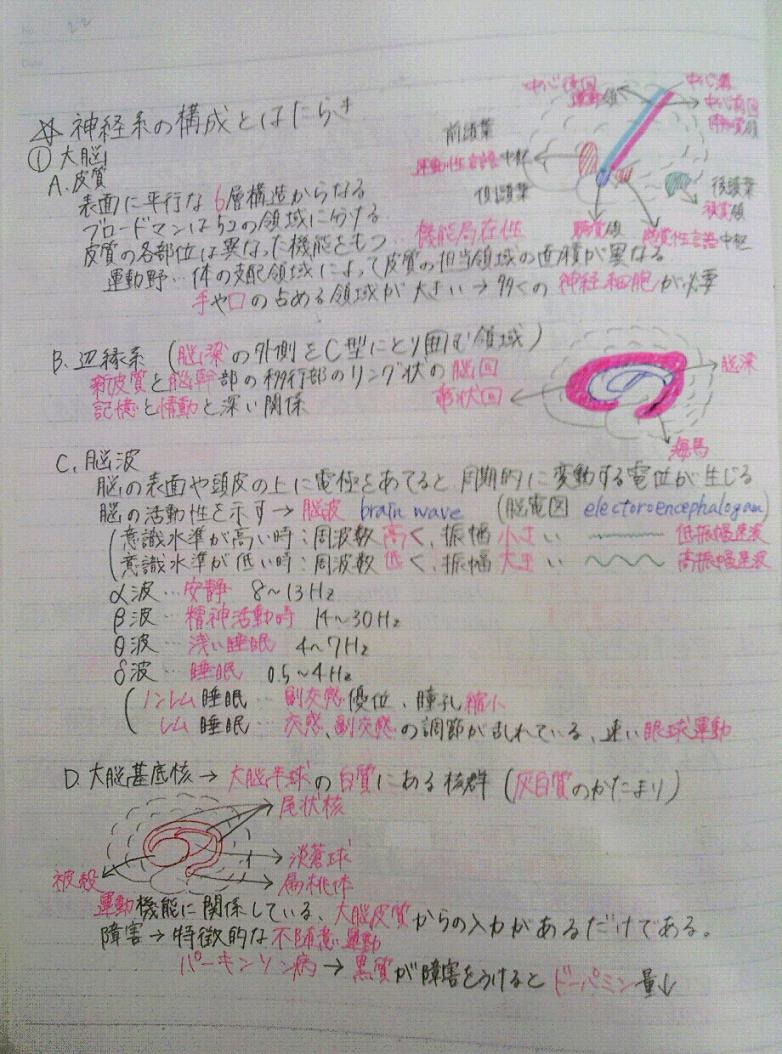 22
☆ 神経系の構成とはたらき
① 大脳
A. 皮質
表面に平行な 6層構造からなる
ブロードマンは52の領域に分ける
皮質の各部位は異なった機能をもつ… 機能局在性
運動野… 体の支配領域によって皮質の担当領域の面積が異なる
手や口の占める領域が大きい → 多くの 神経細胞 が必要
中心後回
中心溝
中心前回
前頭葉
運動性言語中枢
側頭葉
後頭葉
視覚領
聴覚領
感覚性言語中枢
B. 辺縁系 (脳深の外側をC型にとり囲む領域)
新皮質と脳幹部の移行部のリング状の脳回
記憶と情動と深い関係
脳深
帯状回
海馬
C. 脳波
脳の表面や頭皮の上に電極をあてると、周期的に変動する電位が生じる
脳の活動性を示す → 脳波 brain wave (脳電図 electoroencephalogam)
意識水準が高い時:周波数高く、振幅小さい 低振幅速波
意識水準が低い時:周波数低く、振幅大きい 高振幅速波
α波… 安静 8~13Hz
β波… 精神活動時 14~30Hz
θ波… 浅い睡眠 4~7Hz
δ波… 睡眠 0.5~4Hz
ノンレム睡眠… 副交感優位、瞳孔縮小
レム睡眠… 交感、副交感の調節が乱れている、速い眼球運動
D. 大脳基底核 → 大脳半球の白質にある核群 (灰白質のかたまり)
尾状核
淡蒼球
扁桃体
被殻
運動機能に関係している、大脳皮質からの入力があるだけである。
障害 → 特徴的な不随意運動
パーキンソン病 → 黒質が障害をうけるとドーパミン量↓